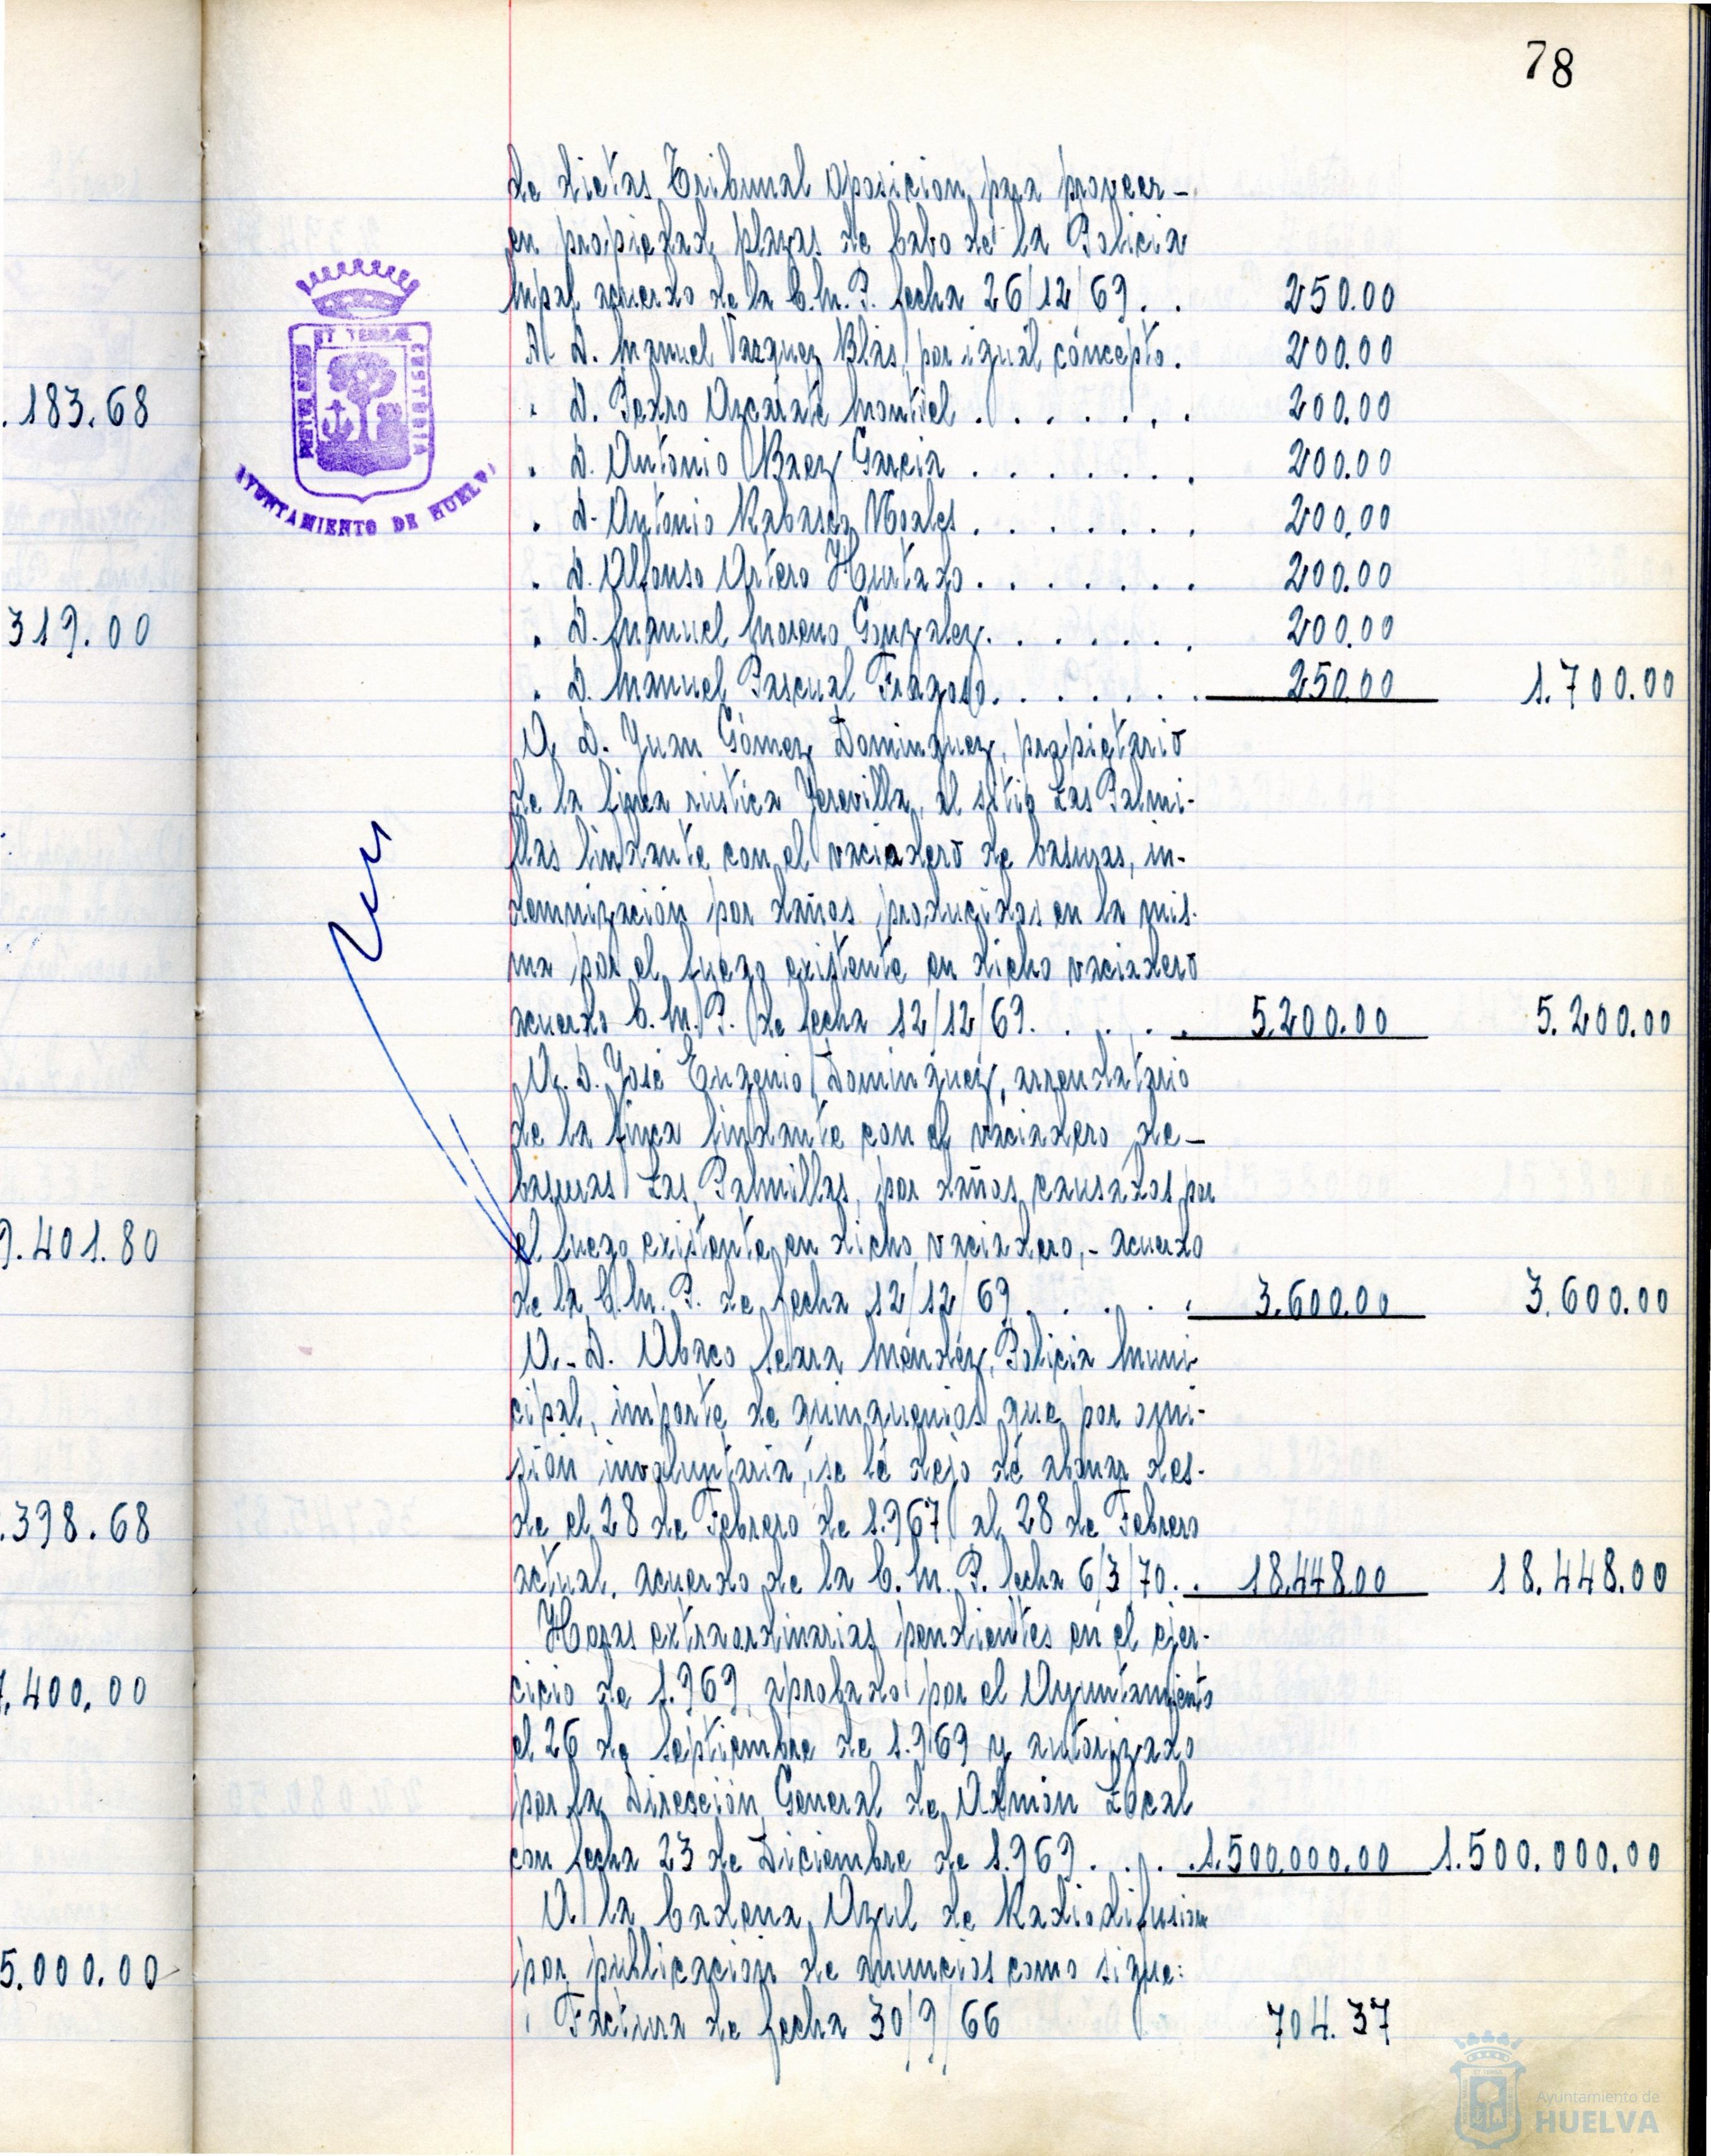 78
de dietas Tribunal oposicion para proveer-
en propiedad plazas de Cabo de la Policia
Mpal acuerdo de la C.M.P. fecha 26/12/69. . 250.00
A D. Manuel Vazquez Blas, por igual concepto. 200.00
" D. Pedro Azcárate Montiel . . . . . . . 200.00
" D. Antonio Baez Garcia . . . . . . . 200.00
" D. Antonio Rabasca Moales . . . . . . . 200.00
" D. Alfonso Artero Hurtado . . . . . . . 200.00
" D. Manuel Moreno Gonzalez . . . . . . . 200.00
" D. Manuel Pascual Fragoso . . . . . . . 250.00 1.700.00
A D. Juan Gómez Dominguez, propietario
de la finca rústica Jerevilla, al sitio Las Palmi-
llas lindante con el vaciadero de basuras, in-
demnización por daños producidos en la mis-
ma por el fuego existente en dicho vaciadero
acuerdo C.M.P. de fecha 12/12/69. . . . . 5.200.00 5.200.00
A. D. José Eugenio Dominguez, arrendatario
de la finca lindante con el vaciadero de-
basuras Las Palmillas, por daños causados por
el fuego existente en dicho vaciadero,- acuerdo
de la C.M.P. de fecha 12/12/69 . . . . . 3.600.00 3.600.00
A.- D. Abaco Seara Méndez, Policia Muni
cipal, importe de quinquenios que por omi-
sión involuntaria, se le dejó de abonar des-
de el 28 de Febrero de 1.967 al 28 de Febrero
actual, acuerdo de la C.M.P. fecha 6/3/70. . 18.448.00 18.448.00
Horas extraordinarias pendientes en el ejer-
cicio de 1.969, aprobado por el Ayuntamiento
el 26 de Septiembre de 1.969 y autorizado
por la Dirección General de Admón Local
con fecha 23 de Diciembre de 1.969. . . . 1.500.000.00 1.500.000.00
A la Cadena Azul de Radiodifusion
por publicación de anuncios como sigue:
Factura de fecha 30/9/66 704.37
.183.68
319.00
9.401.80
.398.68
.400.00
5.000.00
PORTUS MARIS ET TERRAE CUSTODIA
AYUNTAMIENTO DE HUELVA
Ayuntamiento de
HUELVA